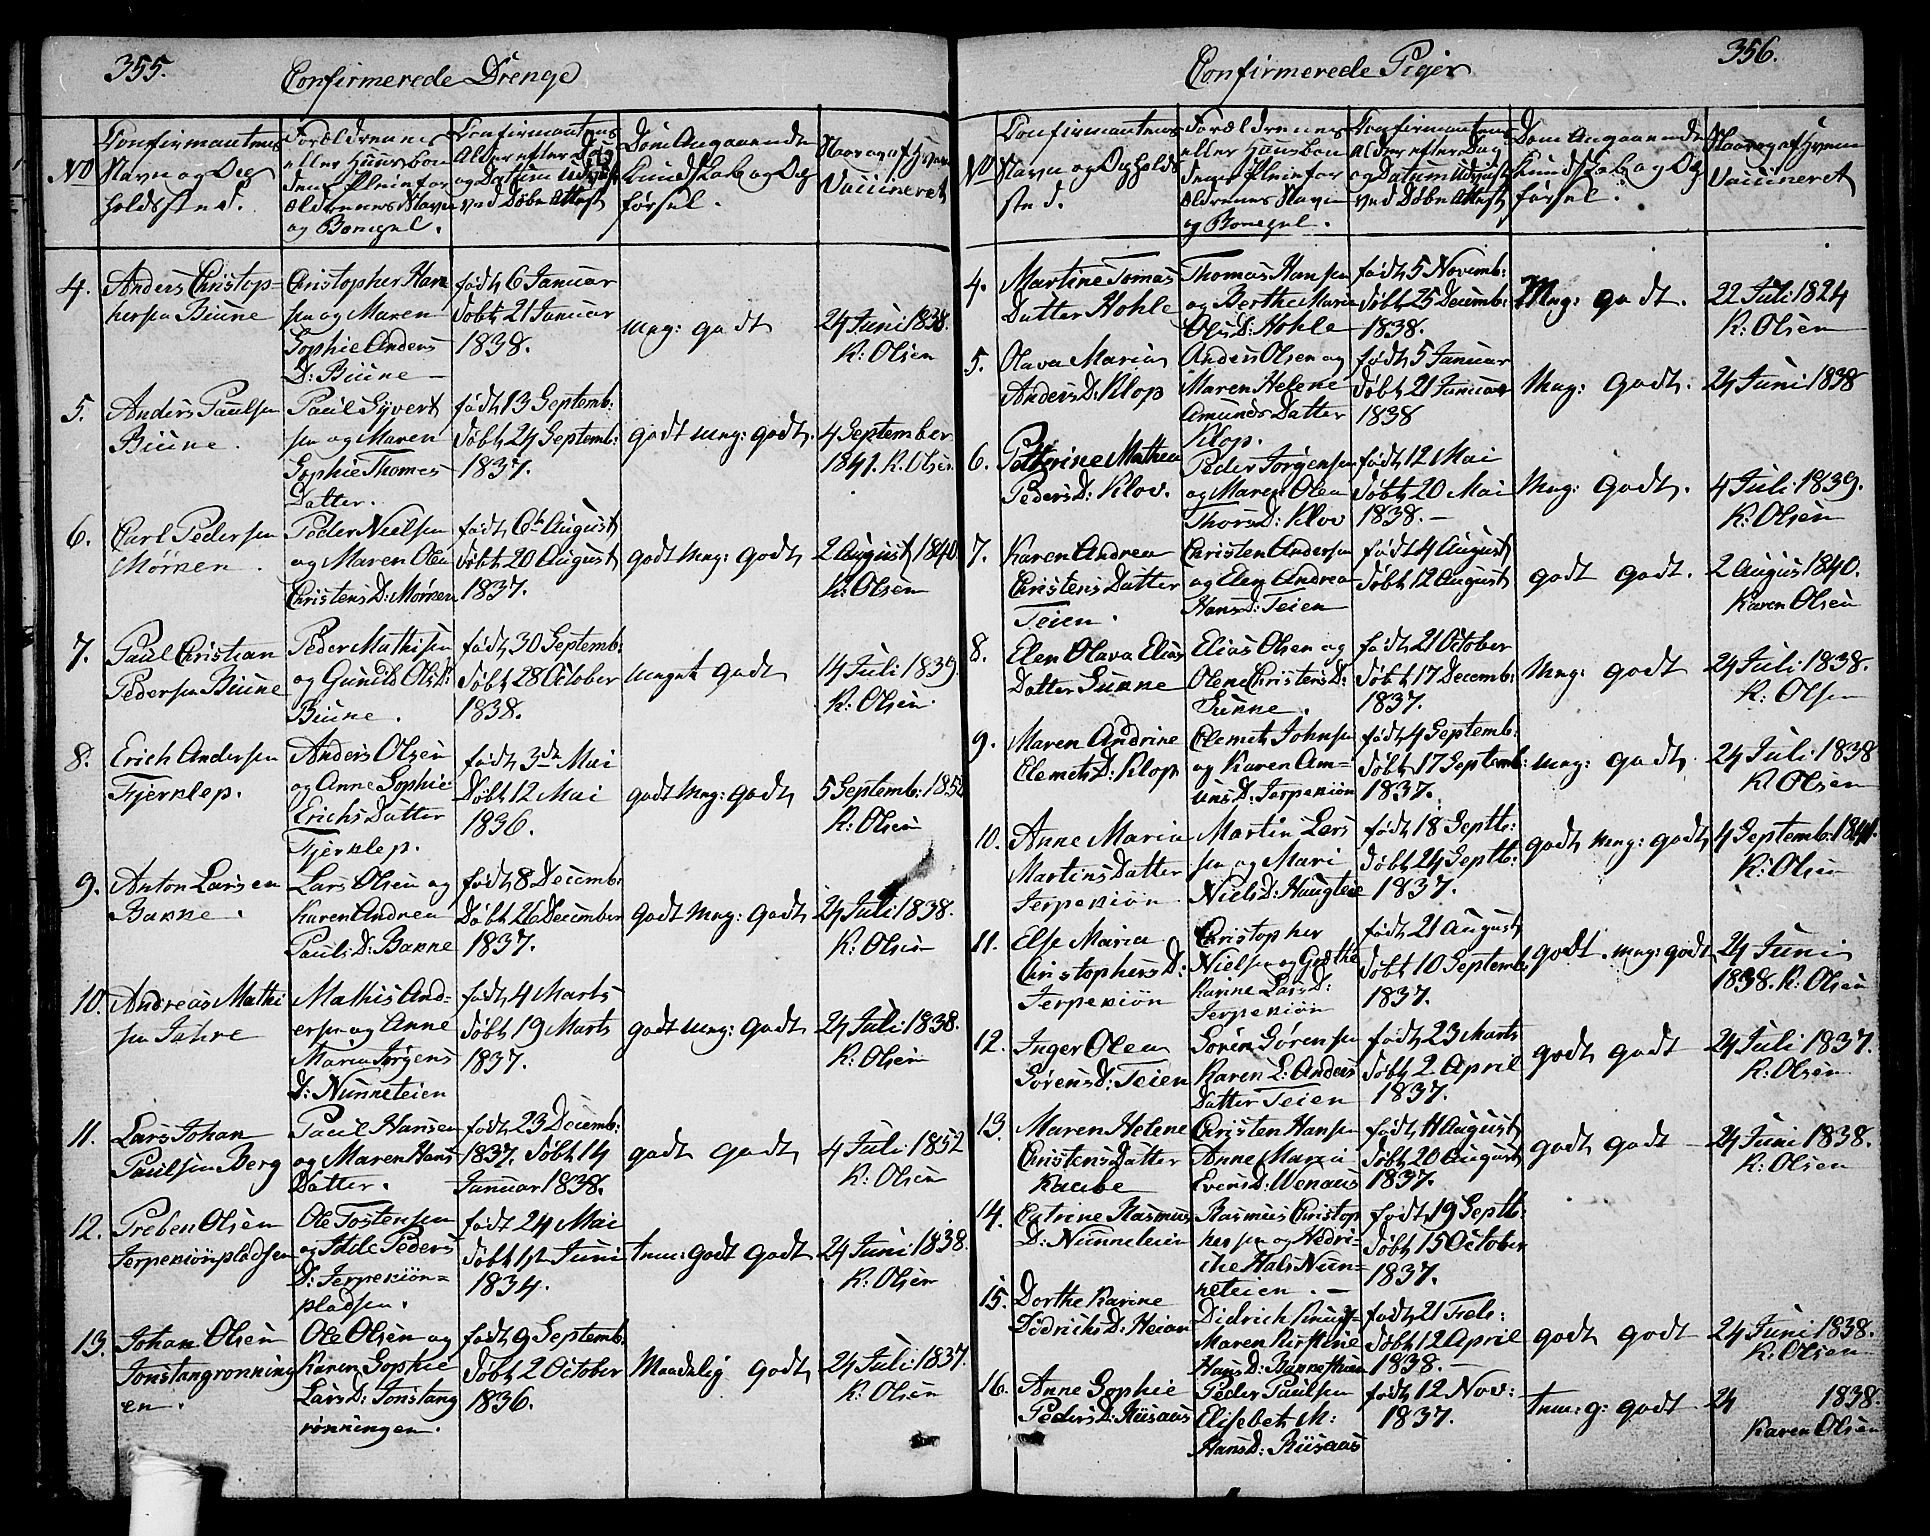 355.
Confirmerede Drenge
No
Confirmantens
Navn og Op
holdssted.
Forældrenes
eller Huusbon
dens Pleiefor
ældrenes Navn
og Bopæl.
Confirmantens
Alder efter Dag
og Datum udviist
ved Døbe Attest
Dom Angaaende
Kundskab og Op
førsel.
Naar og af hvem
Vaccineret
4.
Anders Christop=
hersen Biune
Christopher Han
sen og Maren
Sophie Anders
D: Biune
født 6 Januar
Døbt 21 Januar
1838.
mg: godt
24 Juni 1838.
K: Olsen
5.
Anders Paulsen
Biune.
Paul Syvert
sen og Maren
Sophie Thomas
Datter.
født 13 Septemb:
Døbt 24 Septemb:
1837.
godt mg: godt.
4 September
1841. K. Olsen
6.
Carl Pedersen
Mørken.
Peder Nielsen
og Maren Olea
Christens D: Mørken
født 6te August
døbt 20 August
1837.
godt mg: godt
2 August 1840
K: Olsen
7.
Paul Christian
Pedersen Biune
Peder Mathisen
og Gunild Ols D:
Biune.
født 30 Septemb:
Døbt 28 October
1838.
meget godt
4 Juli 1839.
K: Olsen.
8.
Erich Andersen
Fjerklep.
Anders Olsen
og Anne Sophie
Erichs Datter
Fjerklep.
født 3de Mai
Døbt 12 Mai
1836.
godt mg: godt
5 Septemb: 185
K: Olsen
9.
Anton Larsen
Bakke.
Lars Olsen og
Karen Andrea
Pauls D: Bakke
født 8 Decemb:
Døbt 26 December
1837.
godt mg: godt
24 Juli 1838.
K: Olsen
10.
Andreas Mathi
sen Jahre
Mathis And=
ersen og Anne
Maria Jørgens
D: Nunneteien
født 4 Marts
Døbt 19 Marts
1837.
godt mg: godt
24 Juli 1838.
K: Olsen
11.
Lars Johan
Paulsen Berg
Paul Hansen
og Maren Hans
Datter.
født 23 Decemb:
1837. Døbt 14
Januar 1838.
godt godt
4 Juli 1852
K: Olsen
12.
Preben Olsen
Jerpekiönpladsen
Ole Tostensen
og Peders
D: Jerpekiön=
pladsen.
født 24 Mai
Døbt 1st Juni
1834.
tem: godt godt
24 Juni 1838.
K: Olsen
13.
Johan Olsen
Jonstangrønning
en.
Ole Olsen og
Karen Sophie
Lars D: Jonstang
rønningen.
født 9 Septemb:
Døbt 2 October
1836.
Maadelig godt
24 Juli 1837.
K: Olsen
356.
Confirmerede Piger
No
Confirmantens
Navn og Opholds
sted.
Forældrenes
eller Huusbon
dens Pleiefor
ældrenes Navn
og Bopæl.
Confirmantens
Alder efter Dag
og Datum udviist
ved Døbe Attest
Dom Angaaende
Kundskab og Op
førsel.
Naar og af hvem
Vaccineret
4.
Martine Tomas
Datter Hohle
Thomas Hansen
og Berthe Maria
Ols D: Hohle
født 5 Novemb:
Døbt 25 Decemb:
1838.
Mg: godt.
22 Juli 1824
K: Olsen
5.
Olava Maria
Anders D: Klop
Anders Olsen og
Maren Helene
Amunds Datter
Klop.
født 5 Januar
Døbt 21 Januar
1838
Mg: godt.
24 Juni 1838
6.
Petterine Mathea
Peders D: Klov.
Peder Jørgensen
og Maren Olea
Thors D: Klov
født 12 Mai
Døbt 20 Mai
1838.
Mg: godt.
4 Juli 1839.
K: Olsen
7.
Karen Andrea
Christens Datter
Teien.
Christen Andersen
og Elen Andrea
Hans D: Teien
født 4 August
Døbt 12 August
godt godt.
2 Augus 1840.
Karen Olsen
8.
Elen Olava Elias
Datter Sunne
Elias Olsen og
Olene Christens D:
Sunne.
født 21 October
Døbt 17 Decemb:
1837.
Mg: godt
24 Juli 1838.
K: Olsen
9.
Maren Andrine
Clemets D: Klop
Clemet Johnsen
og Karen Am=
uns D: Jerpekiön
født 4 Septemb:
Døbt 17 Septemb:
1837.
mg: godt.
24 Juli 1838
K Olsen
10.
Anne Maria
Martins Datter
Jerpekiön
Martin Lars
sen og Mari
Niels D: Haugteie
født 18 Septb:
Døbt 24 Septb:
1837.
godt mg: godt
4 Septemb: 1841.
K: Olsen
11.
Else Maria
Christophers D:
Jerpekiön
Christopher
Nielsen og Grethe
Karine Lars D:
Jerpekiön
født 21 August
Døbt 10 Septemb
1837.
godt. mg: godt
24 Juni
1838. K: Olsen
12.
Inger Olea
Sørens D: Teien
Søren Sørensen
Karen L: Anders
Datter Teien
født 23 Marts
Døbt 2 April
1837.
godt godt
24 Juli 1837.
K: Olsen
13.
Maren Helene
Christens Datter
Raabe
Christen Hansen
Anne Maria
Evens D: Wenaas
født 11 August
Døbt 20 August
1837.
godt godt
24 Juni 1838.
K: Olsen
14.
Catrine Rasmus
D: Nunneteien
Rasmus Christop
hersen og Hedri=
che Hals Nun=
neteien.
født 19 Septb:
Døbt 15 October
1837.
15.
Dorthe Karine
Didrichs D: Heian
Didrich
Maren Kirstine
Hans D: Bakke
født 21 Feb:
Døbt 12 April
1838.
godt godt
24 Juni 1838.
K: Olsen
16.
Anne Sophie
Peders D: Riisaas
Peder Paulsen
Elisebet M:
Hans D: Riisaas
født 12 Nov:
1837.
tem: g: godt
24 1838.
Karen Olsen